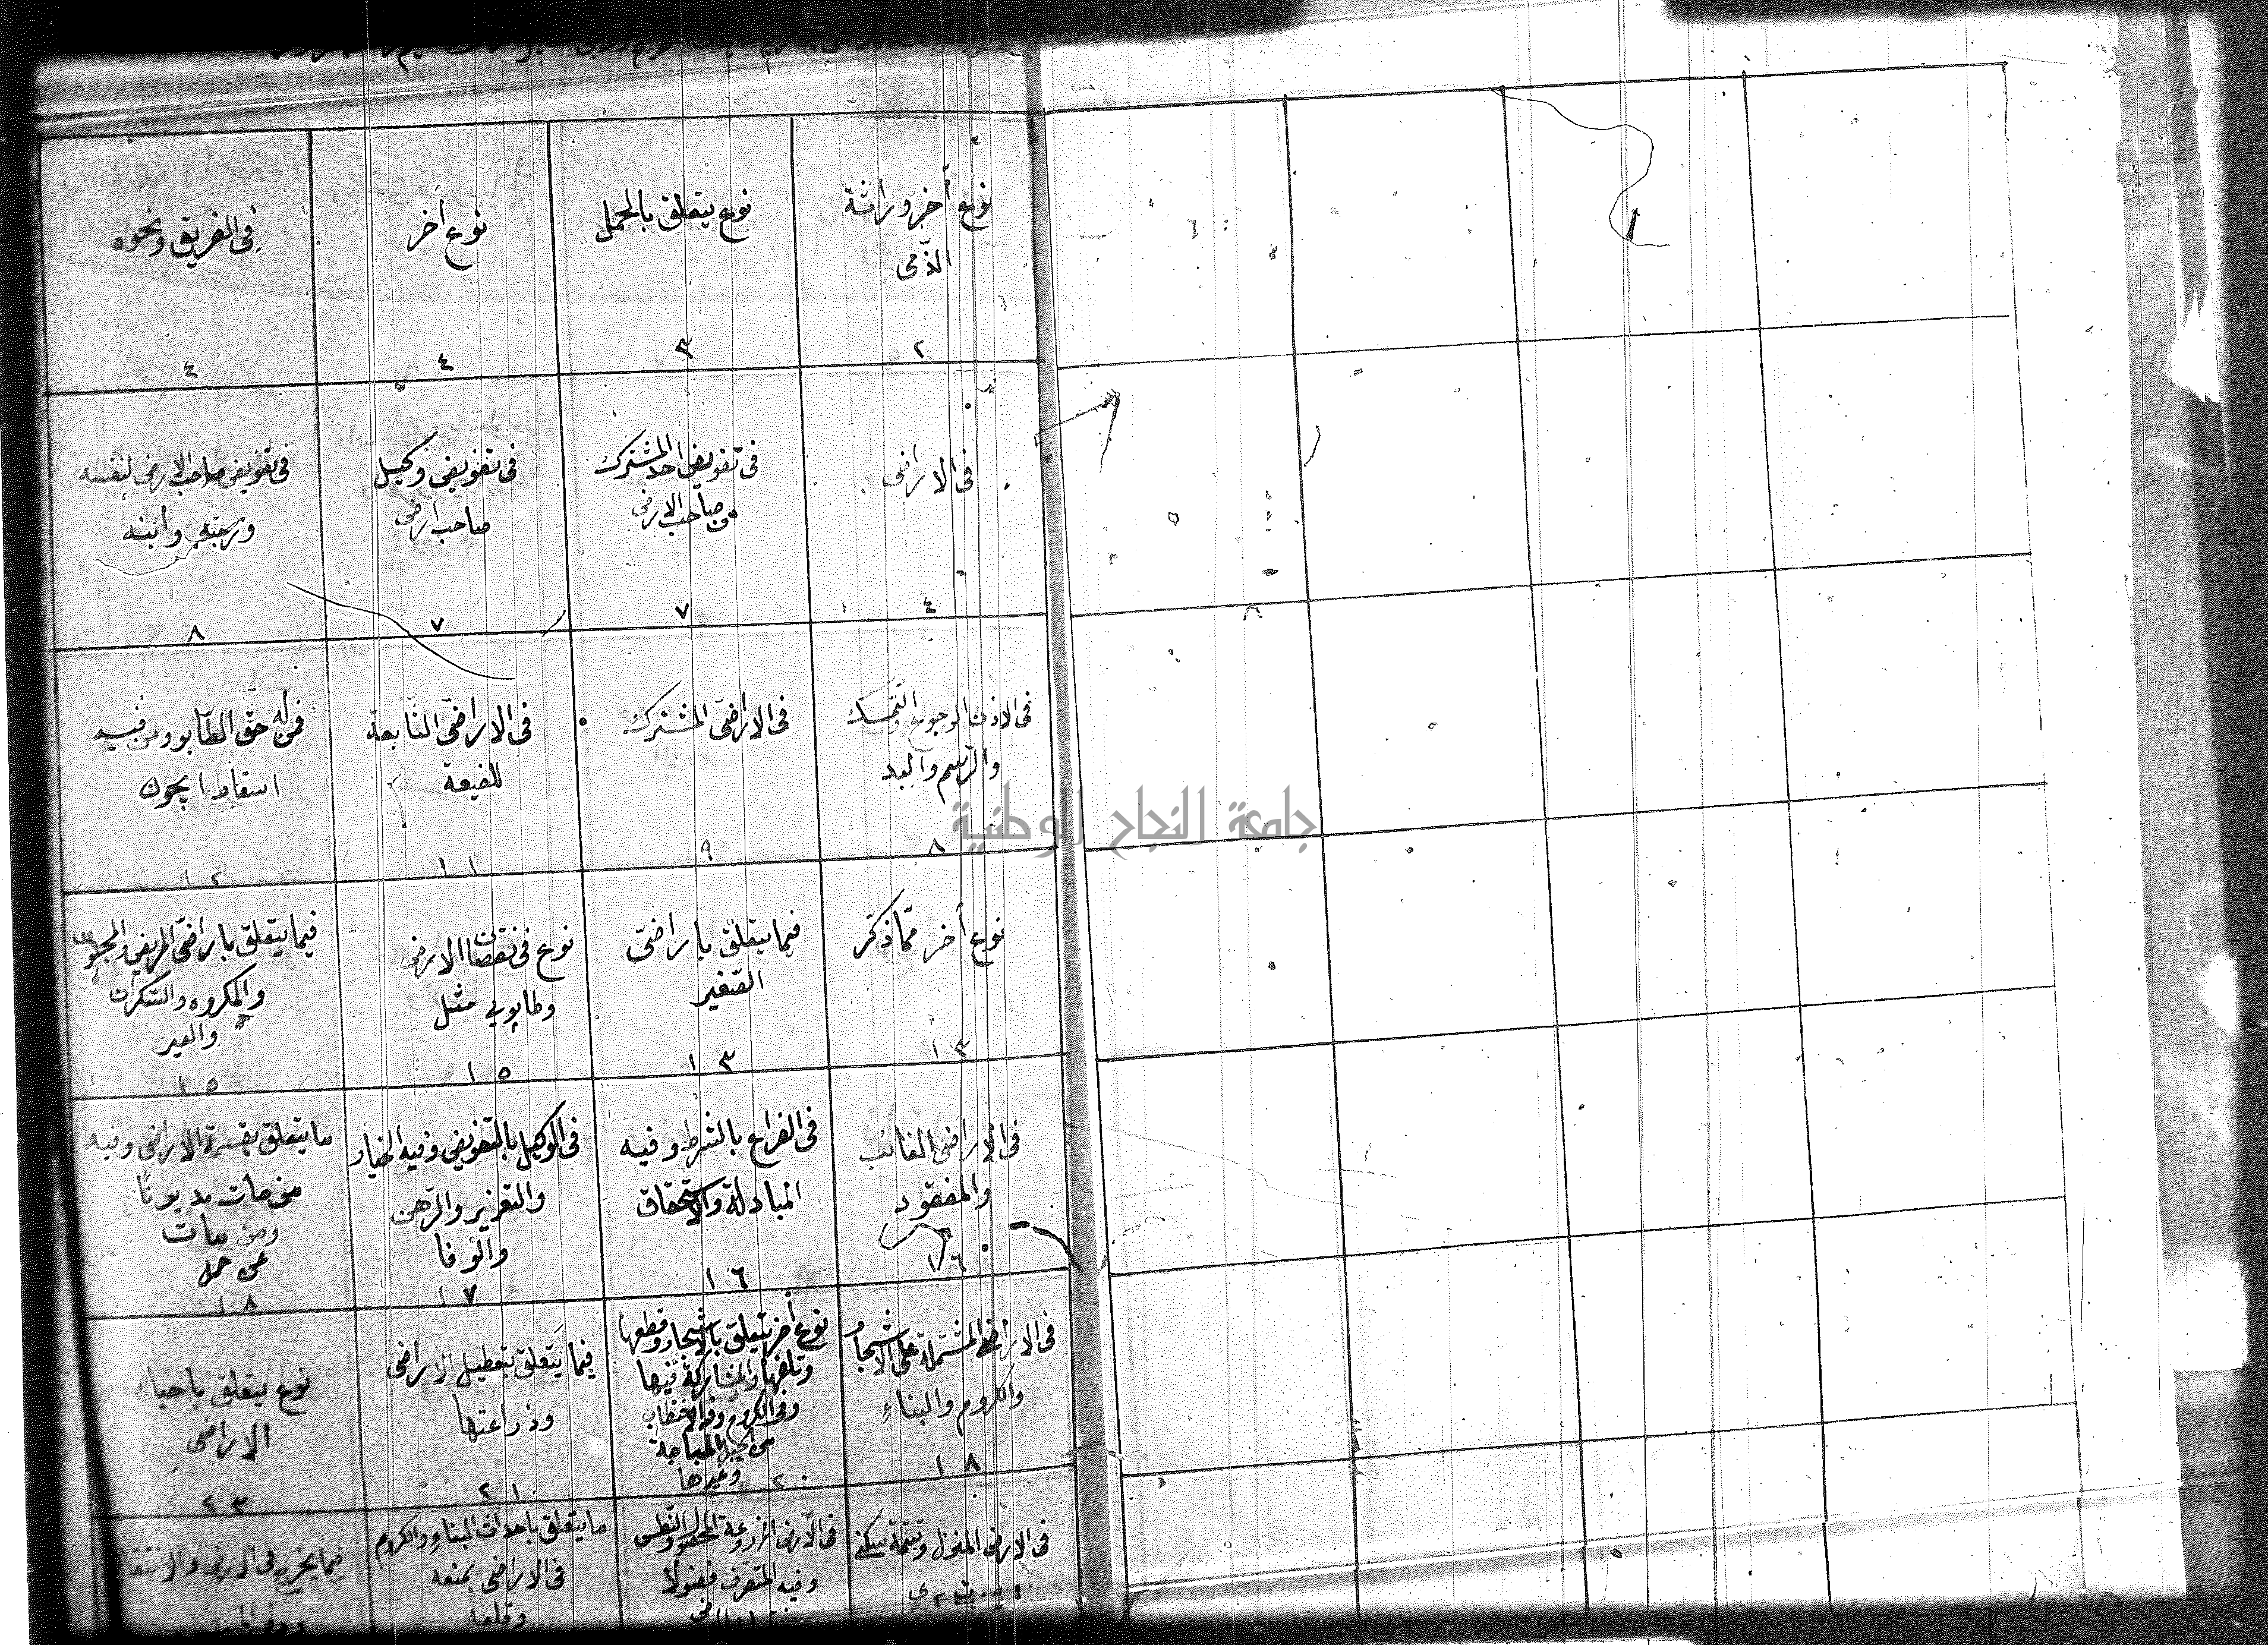 نوع أخر وراثة
الذمى
٢
نوع يتعلق بالحمل
٣
نوع أخر
٤
فى الغريق ونحوه
٤
فى الاراضى
٤
فى تفويض احد المشترك
من صاحب الارض
٧
فى تفويض وكيل
صاحب ارض
٧
فى تفويض صاحب الارض لنفسه
وزوجته وابنه
٨
فى الاذن الرجوع والتمسك
والرسم واليد
٨
فى الاراضى المشترك
٩
فى الاراضى التابعة
للضيعة
١١
حق الطابو ومن فيه
١٢
نوع أخر مما ذكر
١٣
فيما يتعلق باراضى
الصغير
١٣
نوع فى نقصان الارض
وطابوبي مثل
١٥
فيما يتعلق باراضى المريض والمجنون
والمكروه والسكران
والغير
١٥
فى الاراضى الغائب
والمفقود
١٦
فى الفراغ بالشرط وفيه
المبادلة والاستحقاق
١٦
فى الوكيل بالتفويض وفيه الخيار
والتغرير والرهن
والوفا
١٧
ما يتعلق بقسمة الاراضى وفيه
من مات مديونا
ومن مات
عن حمل
١٨
فى الاراضى المشتملة على الاشجار
والكروم والبناء
١٨
نوع أخر يتعلق بالاشجار وقطعها
وتلفها والمشاركة فيها
وفى الكروم وفى الاحطاب
من الجبل المباحة
وغيرها
٢٠
فيما يتعلق بتعطيل الاراضى
وذراعتها
٢١
نوع يتعلق باحياء
الاراضى
٢٣
فى الارض
فى الارض المزروعة
وفيه المتصرف فضولا
ما يتعلق باحداث البناء والكروم
فى الاراضى بمنعه
وقلعه
فيما يخرج فى الارض
جامعة النجاح الوطنية